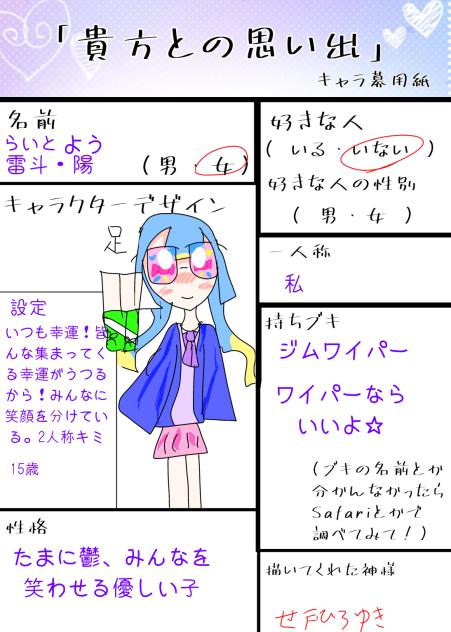 「貴方との思い出」
キャラ募用紙
名前
らいと よう
雷斗・陽
(男・女)
キャラクターデザイン
足
設定
いつも幸運!皆
んな集まってく
る幸運がうつる
から!みんなに
笑顔を分けてい
る。2人称キミ
15歳
性格
たまに鬱、みんなを
笑わせる優しい子
好きな人
(いる・いない)
好きな人の性別
(男・女)
一人称
私
持ちブキ
ジムワイパー
ワイパーなら
いいよ☆
(ブキの名前とか
分かんなかったら
Safariとかで
調べてみて!)
描いてくれた神様
せ戸ひろゆき